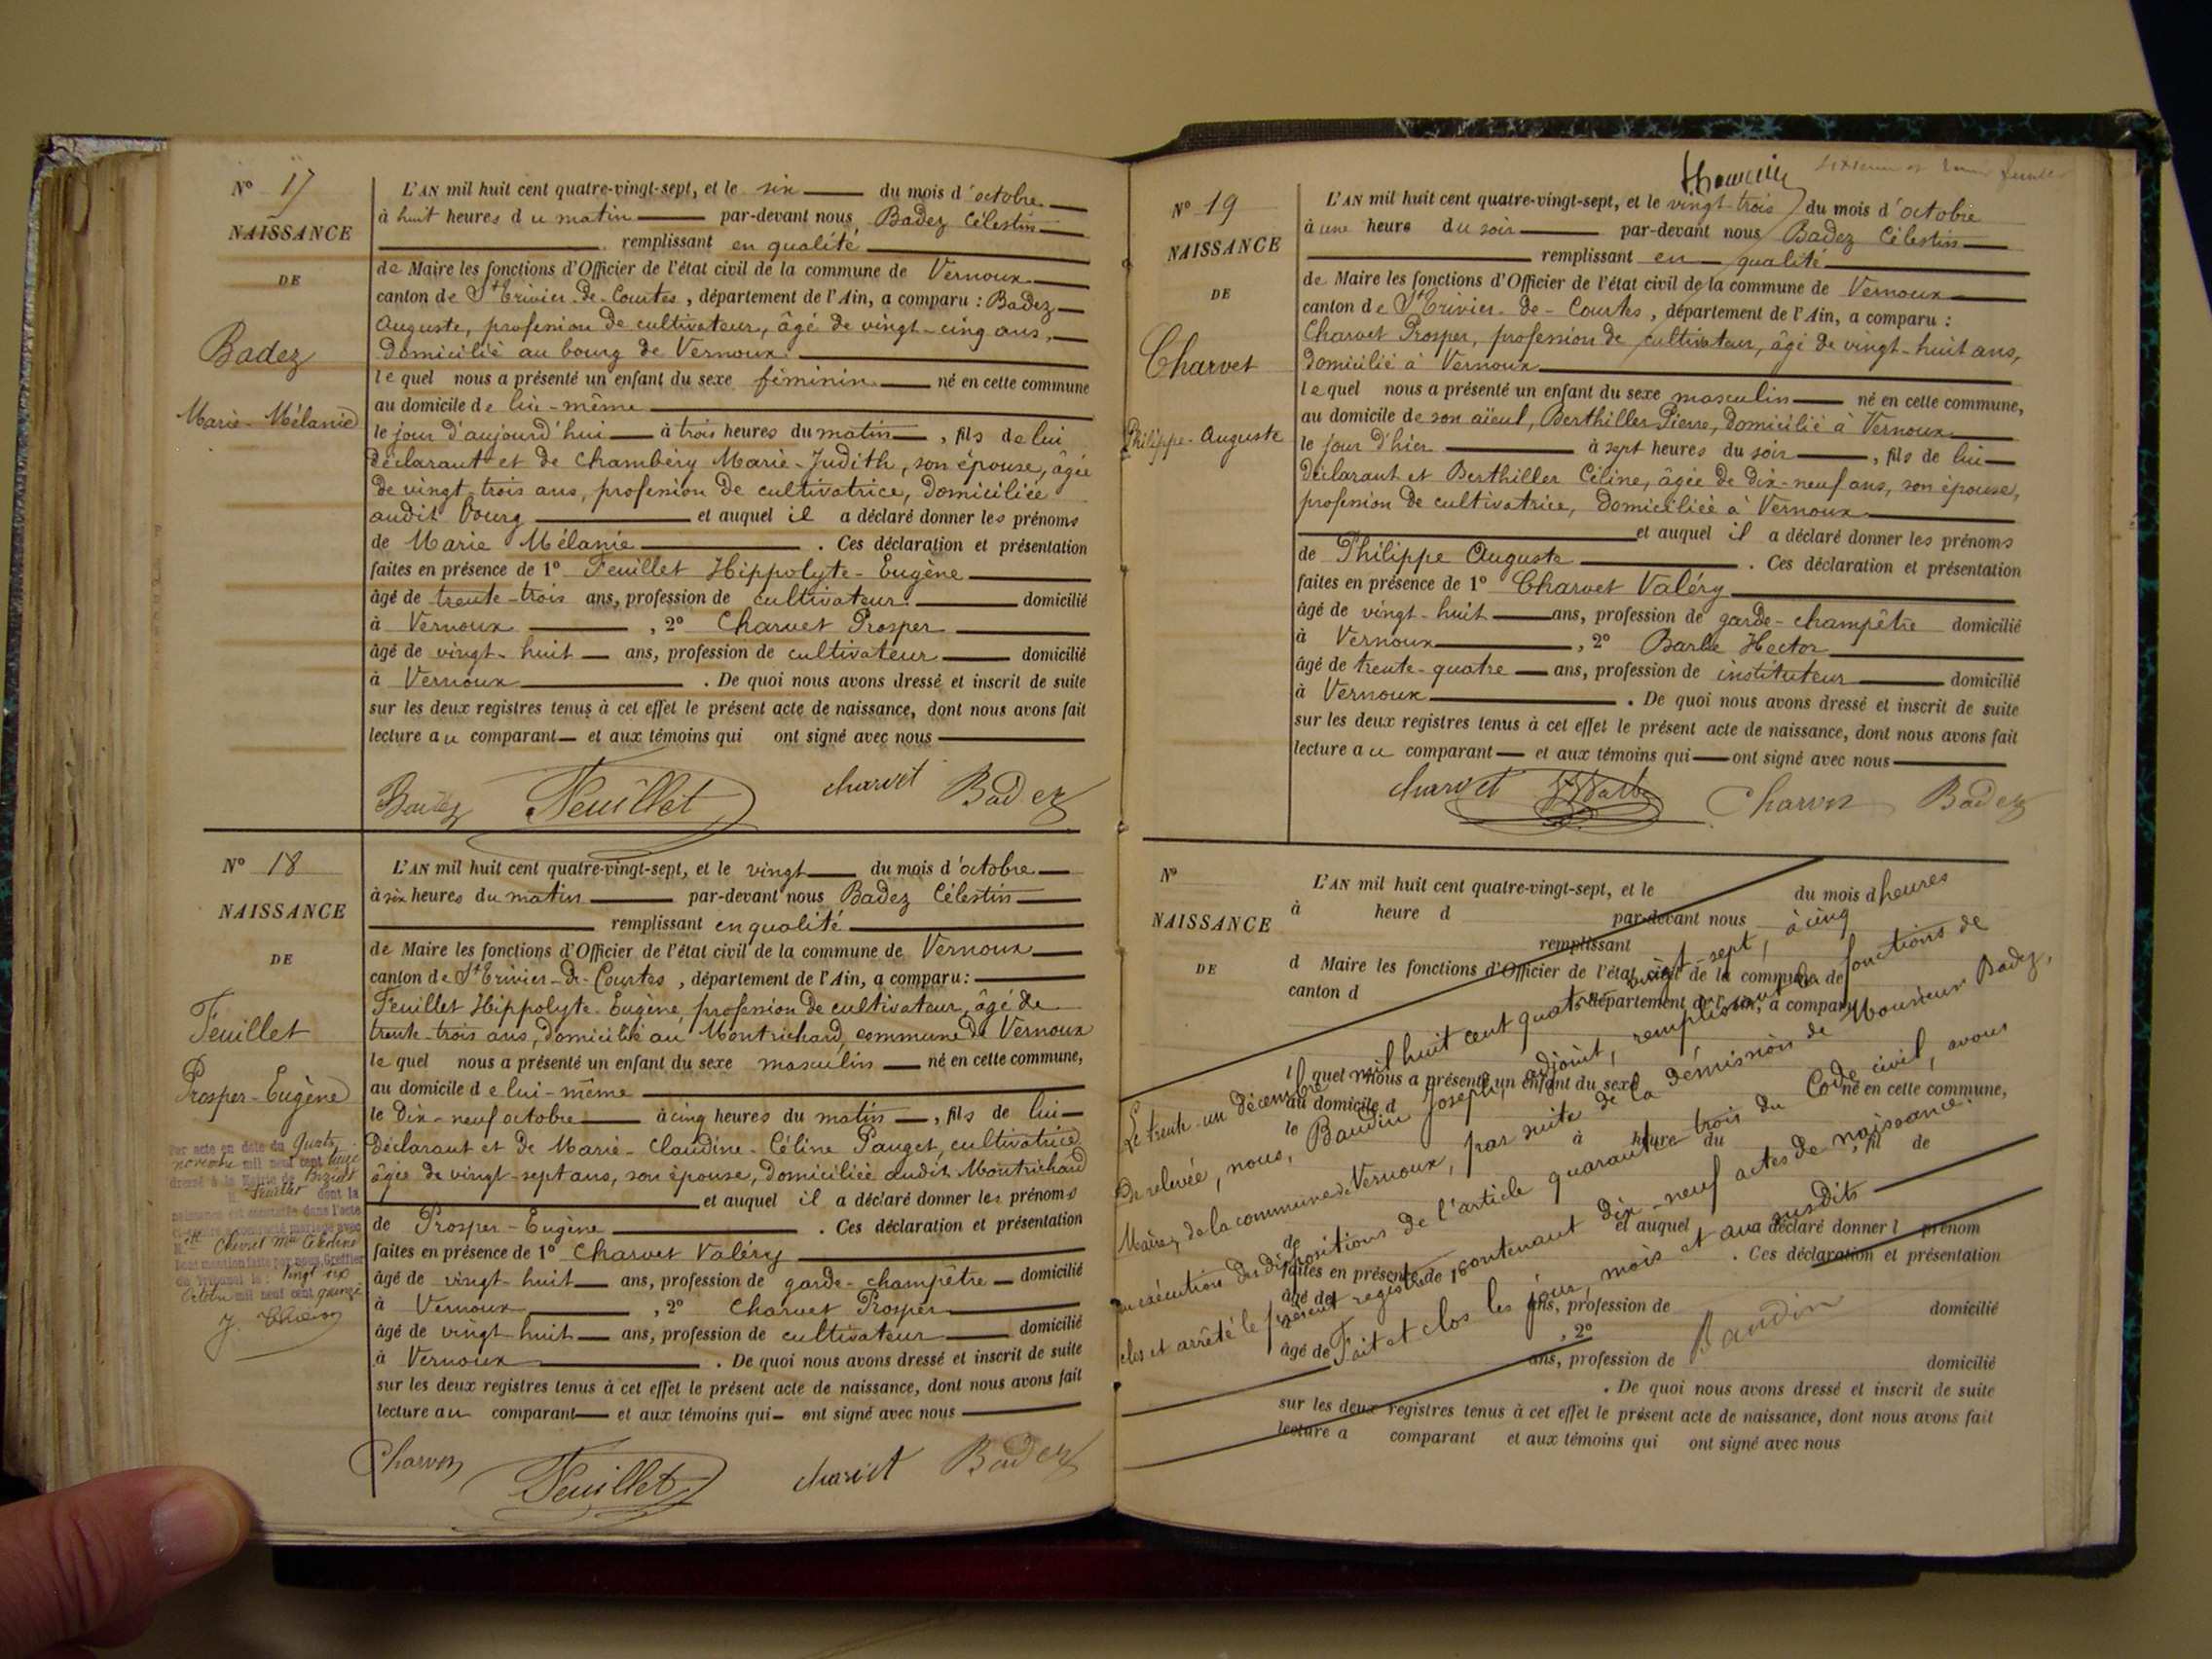 N° 17
NAISSANCE
DE
Badez
Marie-Mélanie
L'AN mil huit cent quatre-vingt-sept, et le six du mois d'octobre
à huit heures du matin par-devant nous, Badez Célestin
remplissant en qualité
de Maire les fonctions d'Officier de l'état civil de la commune de Vernoux
canton de St Trivier-de-Courtes, département de l'Ain, a comparu : Badez
Auguste, profession de cultivateur, âgé de vingt-cinq ans,
domicilié au bourg de Vernoux
lequel nous a présenté un enfant du sexe féminin né en cette commune
au domicile de lui-même
le jour d'aujourd'hui à trois heures du matin, fils de lui
déclarant et de Chambéry Marie-Judith, son épouse, âgée
de vingt-trois ans, profession de cultivatrice, domiciliée
audit bourg et auquel il a déclaré donner les prénoms
de Marie Mélanie. Ces déclaration et présentation
faites en présence de 1° Feuillet Hippolyte-Eugène
âgé de trente-trois ans, profession de cultivateur domicilié
à Vernoux, 2° Charvet Prosper
âgé de vingt-huit ans, profession de cultivateur domicilié
à Vernoux. De quoi nous avons dressé et inscrit de suite
sur les deux registres tenus à cet effet le présent acte de naissance, dont nous avons fait
lecture au comparant et aux témoins qui ont signé avec nous
Badez Feuillet charvet Badez
N° 18
NAISSANCE
DE
Feuillet
Prosper-Eugène
Par acte en date du quatre
novembre mil neuf cent
dressé à la Mairie de Biziat
M. Feuillet dont la
naissance est constatée dans l'acte
ci-contre a contracté mariage avec
Mlle Chevret Mie
Dont mention faite par nous, Greffier
du Tribunal le : Vingt six
Octobre mil neuf cent quinze
L'AN mil huit cent quatre-vingt-sept, et le vingt du mois d'octobre
à six heures du matin par-devant nous Badez Célestin
remplissant en qualité
de Maire les fonctions d'Officier de l'état civil de la commune de Vernoux
canton de St Trivier-de-Courtes, département de l'Ain, a comparu :
Feuillet Hippolyte-Eugène profession de cultivateur, âgé de
trente-trois ans, domicilié au Montrichard, commune de Vernoux
lequel nous a présenté un enfant du sexe masculin né en cette commune,
au domicile de lui-même
le dix-neuf octobre à cinq heures du matin, fils de lui
déclarant et de Marie-Claudine-Céline Pauget, cultivatrice
âgée de vingt-sept ans, son épouse, domiciliée audit Montrichard
et auquel il a déclaré donner les prénoms
de Prosper-Eugène. Ces déclaration et présentation
faites en présence de 1° Charvet Valéry
âgé de vingt-huit ans, profession de garde-champêtre domicilié
à Vernoux, 2° Charvet Prosper
âgé de vingt-huit ans, profession de cultivateur domicilié
à Vernoux. De quoi nous avons dressé et inscrit de suite
sur les deux registres tenus à cet effet le présent acte de naissance, dont nous avons fait
lecture au comparant et aux témoins qui ont signé avec nous
Charvet Feuillet charvet Badez
N° 19
NAISSANCE
DE
Charvet
Philippe-Auguste
L'AN mil huit cent quatre-vingt-sept, et le vingt-trois du mois d'octobre
à une heure du soir par-devant nous Badez Célestin
remplissant en qualité
de Maire les fonctions d'Officier de l'état civil de la commune de Vernoux
canton de St Trivier-de-Courtes, département de l'Ain, a comparu :
Charvet Prosper, profession de cultivateur, âgé de vingt-huit ans,
domicilié à Vernoux
lequel nous a présenté un enfant du sexe masculin né en cette commune,
au domicile de son aïeul, Berthiller Pierre, domicilié à Vernoux
le jour d'hier à sept heures du soir, fils de lui
déclarant et Berthiller Céline, âgée de dix-neuf ans, son épouse,
profession de cultivatrice, domiciliée à Vernoux
et auquel il a déclaré donner les prénoms
de Philippe Auguste. Ces déclaration et présentation
faites en présence de 1° Charvet Valéry
âgé de vingt-huit ans, profession de garde-champêtre domicilié
à Vernoux, 2° Barbe Hector
âgé de trente-quatre ans, profession de instituteur domicilié
à Vernoux. De quoi nous avons dressé et inscrit de suite
sur les deux registres tenus à cet effet le présent acte de naissance, dont nous avons fait
lecture au comparant et aux témoins qui ont signé avec nous
charvet HBarbe Charvet Badez
N°
NAISSANCE
DE
L'AN mil huit cent quatre-vingt-sept, et le du mois d
à heure d par-devant nous
remplissant
d Maire les fonctions d'Officier de l'état civil de la commune de
canton d département de l'Ain, a comparu
l quel nous a présenté un enfant du sexe né en cette commune,
au domicile d
le à heure du , fil de
et auquel a déclaré donner l prénom
de . Ces déclaration et présentation
faites en présence de 1°
âgé de ans, profession de domicilié
, 2°
âgé de ans, profession de domicilié
. De quoi nous avons dressé et inscrit de suite
sur les deux registres tenus à cet effet le présent acte de naissance, dont nous avons fait
lecture a comparant et aux témoins qui ont signé avec nous
Le trente-un décembre mil huit cent quatre-vingt-sept, à cinq heures
de relevée, nous, Baudin Joseph, adjoint, remplissant les fonctions de
Maire, de la commune de Vernoux, par suite de la démission de Monsieur Badez,
en exécution des dispositions de l'article quarante trois du Code civil, avons
clos et arrêté le présent registre contenant dix-neuf actes de naissance.
Fait et clos les jour, mois et an susdits
Baudin